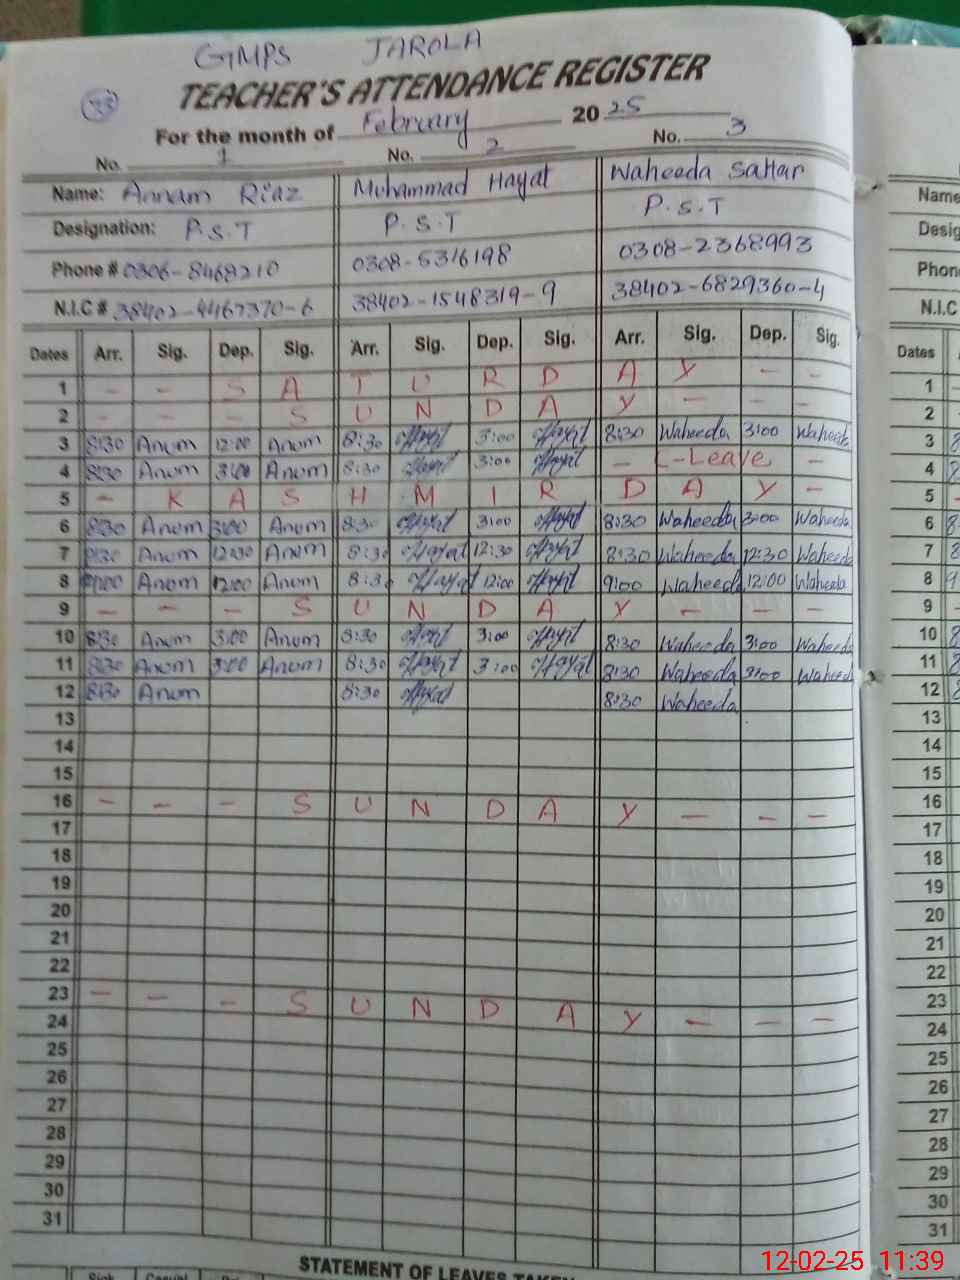 GMPS JAROLA
TEACHER'S ATTENDANCE REGISTER
33
For the month of February 2025
No. 1 No. 2 No. 3
Name: Annam Riaz Muhammad Hayat Waheeda Sattar
Designation: P.S.T P.S.T P.S.T
Phone # 0306-8468210 0308-5316198 0308-2368993
N.I.C # 38402-4467370-6 38402-1548319-9 38402-6829360-4
Dates Arr. Sig. Dep. Sig. Arr. Sig. Dep. Sig. Arr. Sig. Dep. Sig.
1 - - S A T U R D A Y - -
2 - - - S U N D A Y - - -
3 8:30 Anum 12:00 Anum 8:30 Hayat 3:00 Hayat 8:30 Waheeda 3:00 Waheeda
4 8:30 Anum 3:00 Anum 8:30 Hayat 3:00 Hayat - L-Leave -
5 - K A S H M I R D A Y -
6 8:30 Anum 3:00 Anum 8:30 Hayat 3:00 Hayat 8:30 Waheeda 3:00 Waheeda
7 8:30 Anum 12:30 Anum 8:30 Hayat 12:30 Hayat 8:30 Waheeda 12:30 Waheeda
8 9:00 Anum 12:00 Anum 8:30 Hayat 12:00 Hayat 9:00 Waheeda 12:00 Waheeda
9 - - - S U N D A Y - - -
10 8:30 Anum 3:00 Anum 8:30 Hayat 3:00 Hayat 8:30 Waheeda 3:00 Waheeda
11 8:30 Anum 3:00 Anum 8:30 Hayat 3:00 Hayat 8:30 Waheeda 3:00 Waheeda
12 8:30 Anum 8:30 Hayat 8:30 Waheeda
13
14
15
16 - - - S U N D A Y - - -
17
18
19
20
21
22
23 - - - S U N D A Y - - -
24
25
26
27
28
29
30
31
STATEMENT OF LEAVES TAKEN
Sick Casual
Name
Desig
Phon
N.I.C
Dates
1
2
3
4
5
6
7
8
9
10
11
12
13
14
15
16
17
18
19
20
21
22
23
24
25
26
27
28
29
30
31
12-02-25 11:39